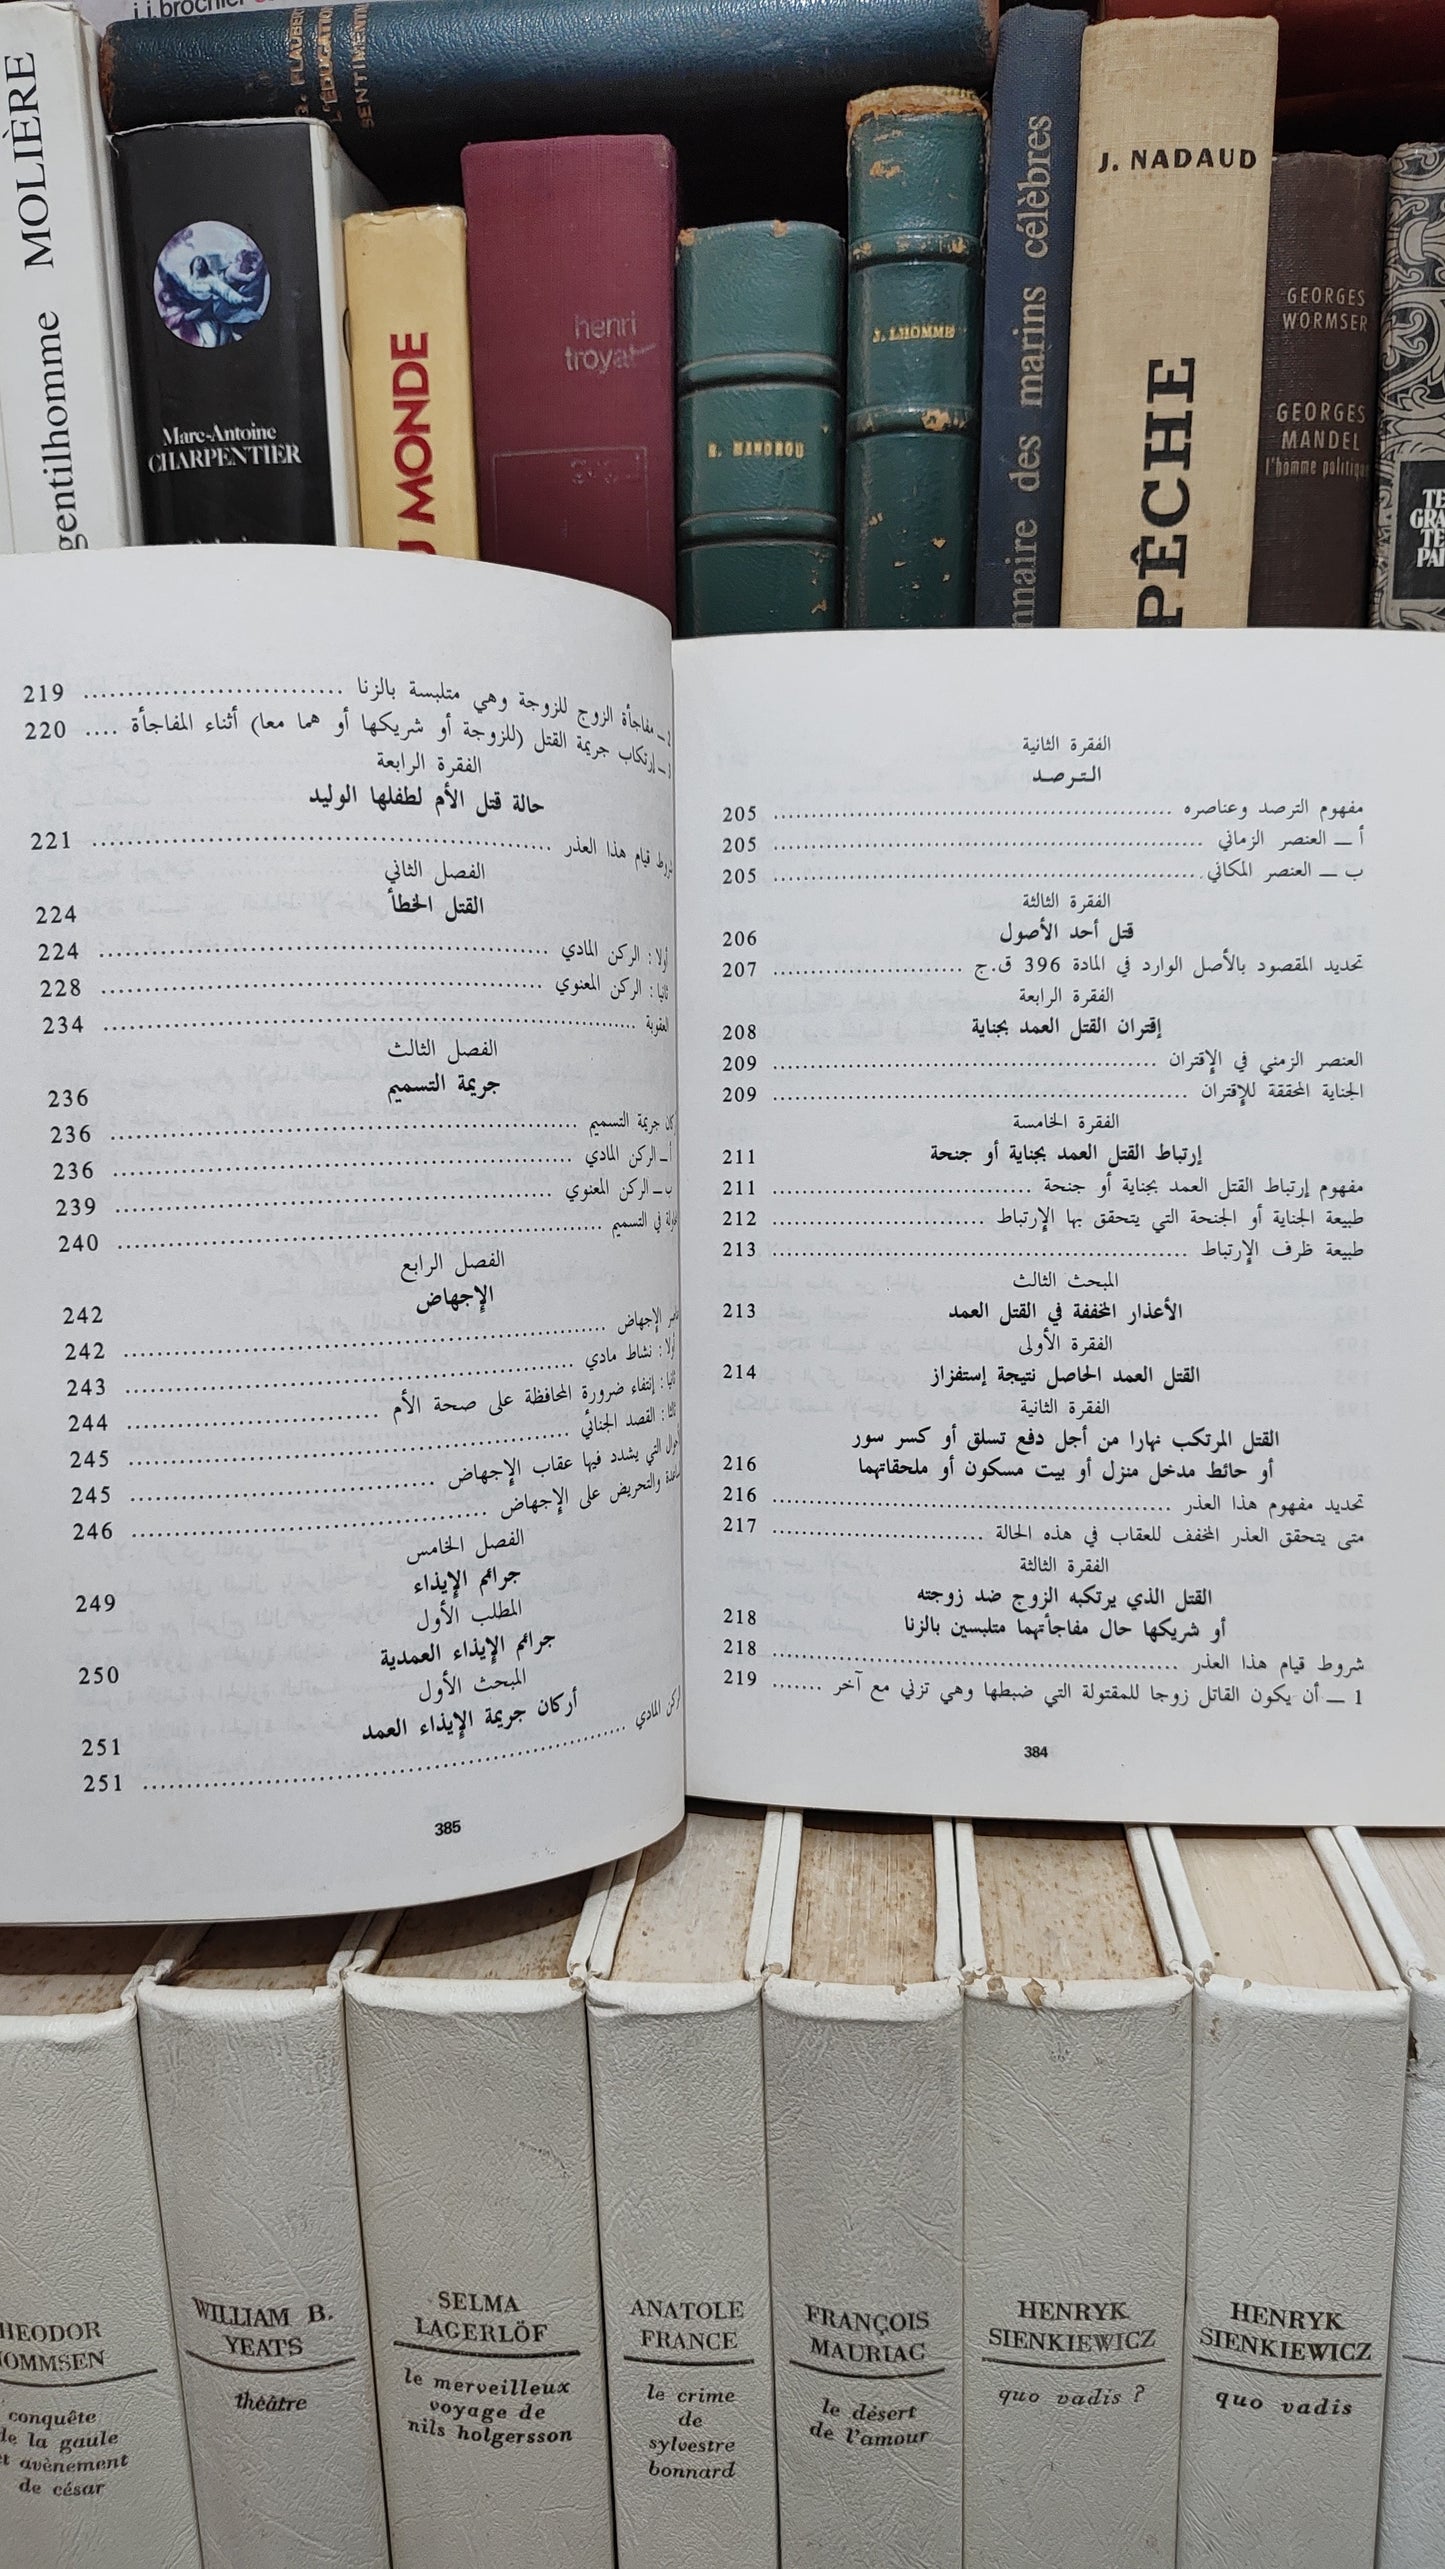 j.j.brochier
G. FLAUBERT
L'ÉDUCATION
SENTIMENT
MOLIÈRE
gentilhomme
Marc-Antoine
CHARPENTIER
MONDE
henri
troyat
R. MANDROU
J. LHOMME
nnaire des marins célèbres
J. NADAUD
PÊCHE
GEORGES
WORMSER
GEORGES
MANDEL
l'homme politique
الفقرة الثانية
الترصد
مفهوم الترصد وعناصره ........ 205
أ — العنصر الزماني ........ 205
ب — العنصر المكاني ........ 205
الفقرة الثالثة
قتل أحد الأصول 206
تحديد المقصود بالأصل الوارد في المادة 396 ق.ج ........ 207
الفقرة الرابعة
إقتران القتل العمد بجناية 208
العنصر الزمني في الإقتران ........ 209
الجناية المحققة للإقتران ........ 209
الفقرة الخامسة
إرتباط القتل العمد بجناية أو جنحة 211
مفهوم إرتباط القتل العمد بجناية أو جنحة ........ 211
طبيعة الجناية أو الجنحة التي يتحقق بها الإرتباط ........ 212
طبيعة ظرف الإرتباط ........ 213
المبحث الثالث
الأعذار المخففة في القتل العمد 213
الفقرة الأولى
القتل العمد الحاصل نتيجة إستفزاز 214
الفقرة الثانية
القتل المرتكب نهارا من أجل دفع تسلق أو كسر سور
أو حائط مدخل منزل أو بيت مسكون أو ملحقاتهما 216
تحديد مفهوم هذا العذر ........ 216
متى يتحقق العذر المخفف للعقاب في هذه الحالة ........ 217
الفقرة الثالثة
القتل الذي يرتكبه الزوج ضد زوجته
أو شريكها حال مفاجأتهما متلبسين بالزنا 218
شروط قيام هذا العذر ........ 218
1 — أن يكون القاتل زوجا للمقتولة التي ضبطها وهي تزني مع آخر ....... 219
384
2 — مفاجأة الزوج للزوجة وهي متلبسة بالزنا ........ 219
— إرتكاب جريمة القتل (للزوجة أو شريكها أو هما معا) أثناء المفاجأة .... 220
الفقرة الرابعة
حالة قتل الأم لطفلها الوليد
شروط قيام هذا العذر ........ 221
الفصل الثاني
القتل الخطأ 224
أولا : الركن المادي ........ 224
ثانيا : الركن المعنوي ........ 228
العقوبة ........ 234
الفصل الثالث
جريمة التسميم 236
أركان جريمة التسميم ........ 236
أ — الركن المادي ........ 236
ب — الركن المعنوي ........ 239
في التسميم ........ 240
الفصل الرابع
الإجهاض 242
الإجهاض ........ 242
أولا : نشاط مادي ........ 243
ثانيا : إنتفاء ضرورة المحافظة على صحة الأم ........ 244
ثالثا : القصد الجنائي ........ 245
التي يشدد فيها عقاب الإجهاض ........ 245
والتحريض على الإجهاض ........ 246
الفصل الخامس
جرائم الإيذاء 249
المطلب الأول
جرائم الإيذاء العمدية 250
المبحث الأول
أركان جريمة الإيذاء العمد 251
الركن المادي ........ 251
385
HEODOR
OMMSEN
conquête
de la gaule
et avènement
de césar
WILLIAM B.
YEATS
théâtre
SELMA
LAGERLÖF
le merveilleux
voyage de
nils holgersson
ANATOLE
FRANCE
le crime
de
sylvestre
bonnard
FRANÇOIS
MAURIAC
le désert
de l'amour
HENRYK
SIENKIEWICZ
quo vadis ?
HENRYK
SIENKIEWICZ
quo vadis